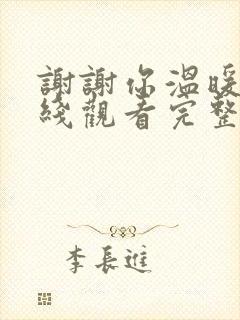 謝謝你溫暖
綫觀看完整
李長進